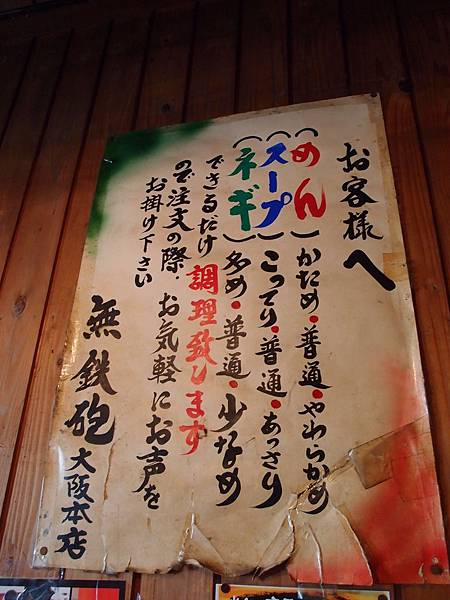 お客様へ
(めん)かため・普通・やわらかめ
(スープ)こってり・普通・あっさり
(ネギ)多め・普通・少なめ
できるだけ調理致します
ので注文の際、お気軽にお声を
お掛け下さい
無鉄砲大阪本店